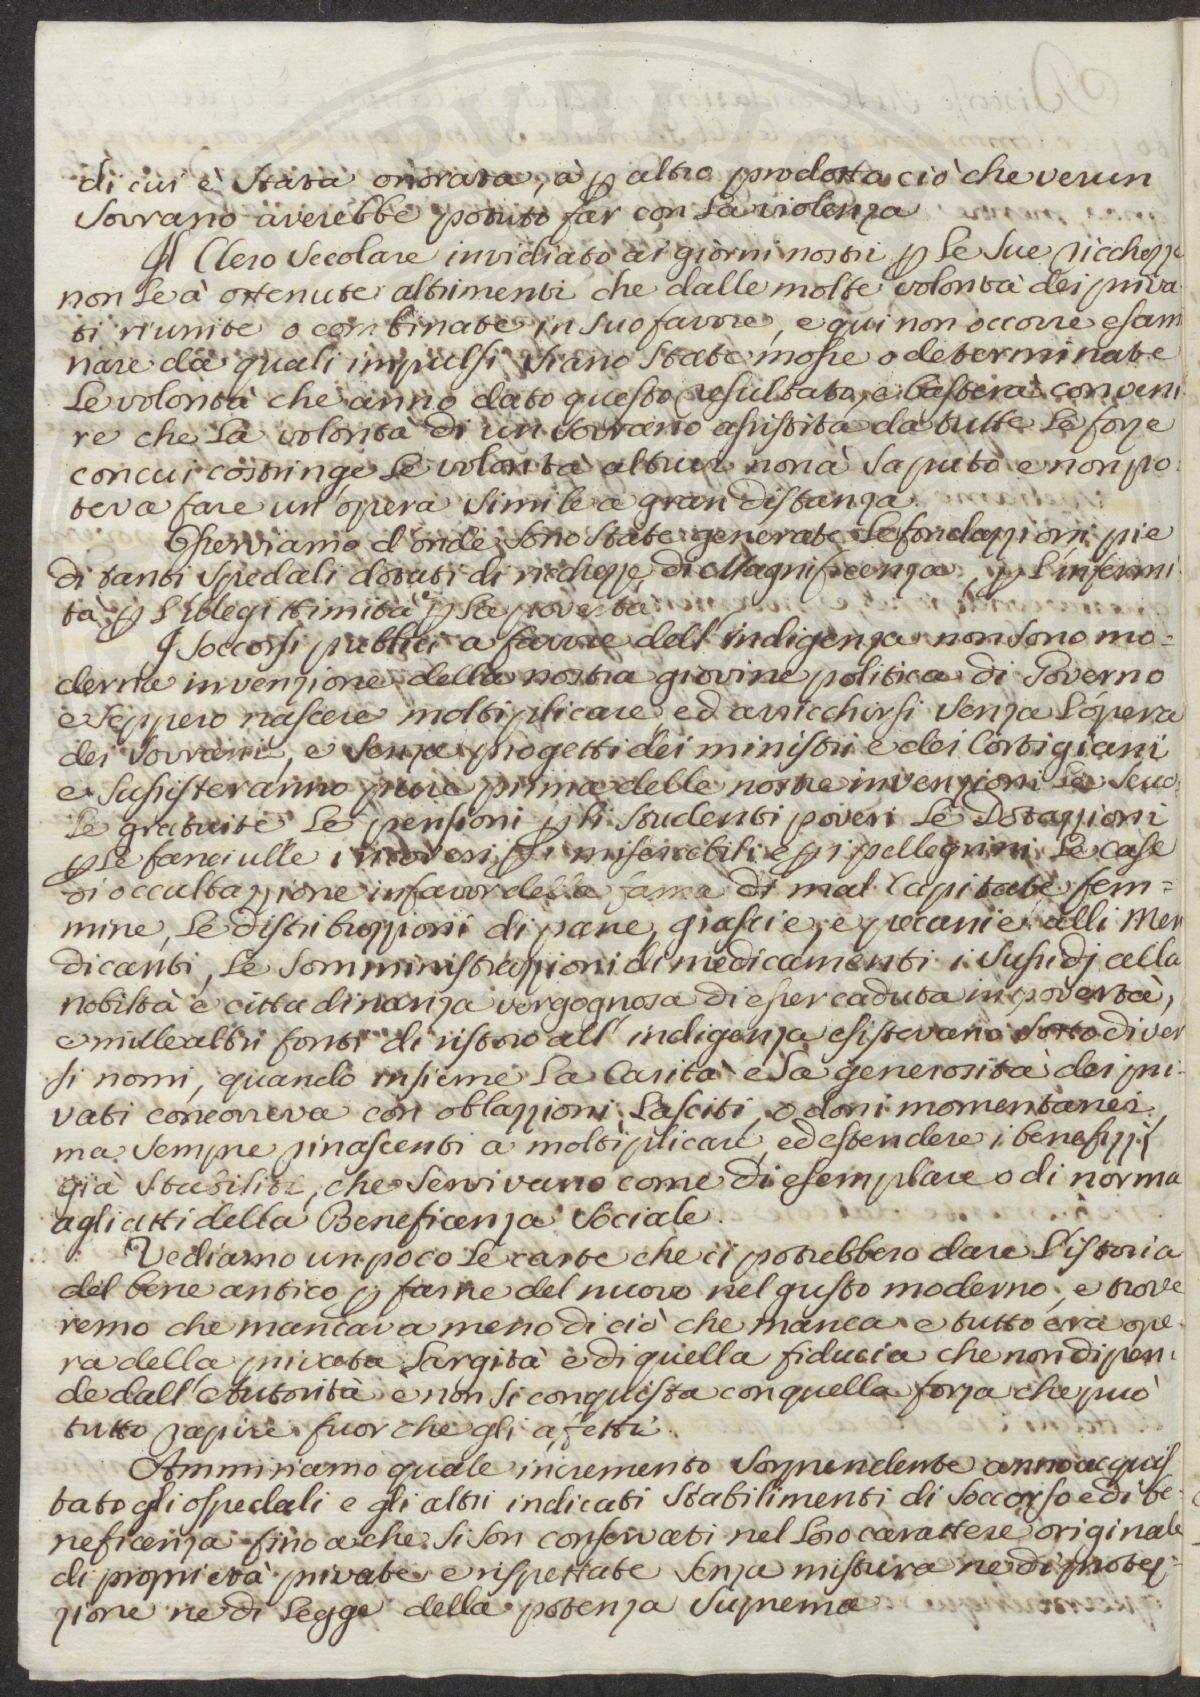 di cui è stata onorata, à p altro prodotto ciò che verun
Sovrano averebbe potuto far con la violenza
Il Clero Secolare invidiato ai giorni nostri p le sue ricchezze
non le à ottenute altrimenti che dalle molte volontà dei priva
ti riunite o combinate in suo favore, e qui non occorre esam
nare da quali impulsi siano state mosse o determinate
le volontà che anno dato questo resultato, e basterà conveni
re che la volontà di un Sovrano assistita da tutte le forze
con cui costringe le volontà altrui non à saputo e non po:
teva fare un'opera simile a gran distanza.
Osserviamo d'onde sono state generate le fondazzioni pie
di tanti Spedali dotati di ricchezze, di Magnificenza, p l'infermi
tà p l'ilegittimità e p la povertà
I soccorsi publici a favore dell'indigenza non sono mo=
derna invenzione della nostra giovine politica di Governo
e seppero nascere moltiplicare ed arricchirsi senza l'opera
dei Sovrani, e senza progetti dei ministri e dei Cortigiani
e sussisteranno pura prima delle nostre invenzioni le scuo
le gratuite le pensioni p li studenti poveri le Dotazzioni
p le fanciulle i ricoveri p i miserabili e p i pellegrini, le case
di occultazzione in favor della fama di mal capitate fem=
mine, le distribuzzioni di pane, grascie, e pecunie alli Men
dicanti, le somministrazzioni di medicamenti i sussidj alla
nobiltà e cittadinanza vergognosa di esser caduta in povertà,
e mille altri fonti di ristoro all'indigenza esistevano sotto diver
si nomi, quando insieme la Carità e la generosità dei pri=
vati concorreva con oblazzioni, lasciti, o doni momentanei,
ma sempre rinascenti a moltiplicare, ed estendere i benefizzj
già stabiliti, che servivano come di esemplare o di norma
agli atti della Beneficenza Sociale.
Vediamo un poco le carte che ci potrebbero dare l'istoria
del bene antico p farne del nuovo nel gusto moderno, e trove
remo che mancava meno di ciò che manca e tutto era ope=
ra della privata largità e di quella fiducia che non dipen=
de dall'Autorità e non si conquista con quella forza che può
tutto rapire fuor che gli affetti.
Ammiriamo quale incremento sorprendente anno acquis
tato gli ospedali e gli altri indicati Stabilimenti di soccorso e di be=
neficenza fino a che si son conservati nel loro carattere originale
di proprietà private e rispettate senza mistura ne di protez=
zione ne di Legge della potenza Suprema